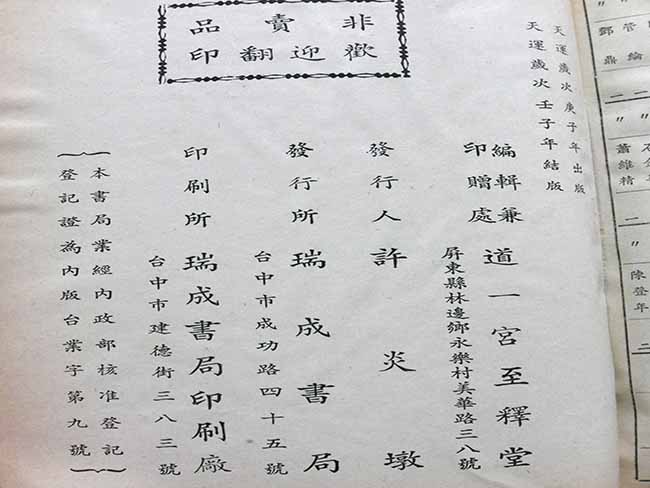 非賣品
歡迎翻印
天運歲次庚子年出版
天運歲次壬子年結版
編輯兼
印贈處
道一宮至釋堂
屏東縣林邊鄉永樂村美華路三八號
發行人 許炎墩
發行所 瑞成書局
台中市成功路四十五號
印刷所 瑞成書局印刷廠
台中市建德街三八三號
本書局業經內政部核准登記
登記證為內版台業字第九號
管
鄧
綸
鼎
一
二
〃
〃
蕭維精
一
二
〃
陳登年